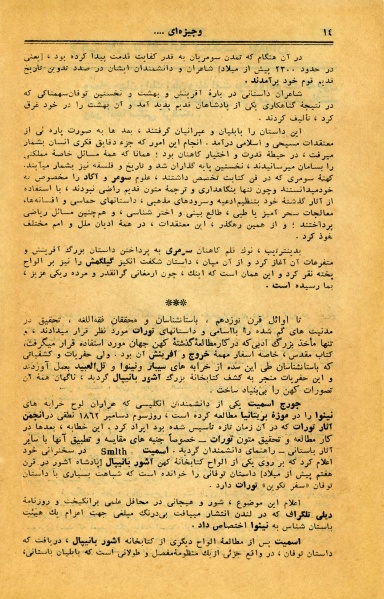 ۱۴ وجیزه‌ای ....
در آن هنگام که تمدن سومریان به قدر کفایت قدمت پیدا کرده بود ، (یعنی
در حدود ۲۳۰۰ پیش از میلاد) شاعران و دانشمندان ایشان در صدد تدوین تاریخ
قدیم قوم خود برآمدند .
شاعران داستانی در بارهٔ آفرینش و بهشت و نخستین توفان سهمناکی که
در نتیجهٔ گناهکاری یکی از پادشاهان قدیم پدید آمد و آن بهشت را در خود غرق
کرد ، تألیف کردند .
این داستان را بابلیان و عبرانیان گرفتند ، بعد ها به صورت پاره ئی از
معتقدات مسیحی و اسلامی درآمد . انجام این امور که جزء دقایق فکری انسان بشمار
میرفت ، در حیطهٔ قدرت و اختیار کاهنان بود ؛ همانا که همهٔ مسائل خاصهٔ مملکتی
را بسامان میرسانیدند ، نخستین پایه گذاران شد و تاریخ و فلسفه نیز بشمار میآیند.
کهنهٔ سومری که در فن کتابت تخصص داشتند ، علوم سومر و آکاد را مخصوص به
خود میدانستند و چون تنها بنگاهداری و ترجمهٔ متون قدیم راضی نبودند ، با استفاده
از آثار گذشتهٔ خود بتنظیم ادعیه و سرودهای مذهبی ، داستانهای حماسی و افسانه‌ها،
معالجات سحر آمیز یا طبی ، طالع بینی و اختر شناسی ، و همچنین مسائل ریاضی
پرداختند ؛ و از همین رهگذر ، این معتقدات ، در همهٔ ادیان ملل و امم مختلف
نفوذ کرد .
بدینترتیب ، نوك قلم کاهنان سومری به پرداختن داستان بزرگ آفرینش و
متفرعات آن آغاز کرد و از آن میان ، داستان شگفت انگیز گیلگمش را نیز بر الواح
پخته نقر کرد و این همان است که اینك ، چون ارمغانی گرانقدر و مرده ریگی عزیز ،
بما رسیده است .
***
تا اوائل قرن نوزدهم ، باستانشناسان و محققان فقه‌اللغه ، تحقیق در
مدنیت های گم شده را با اسامی و داستانهای تورات مورد نظر قرار میدادند ، و
تنها مأخذ بزرگ ادبی که در کار مطالعهٔ گذشتهٔ کهن جهان مورد استفاده قرار میگرفت،
کتاب مقدس ، خاصه اسفار مهمهٔ خروج و آفرینش آن بود . ولی حفریات و کشفیاتی
که باستانشناسان طی این سده از خرابه های سیپار و نینوا و تل‌العبید بعمل آوردند
و این حفریات منجر به کشف کتابخانهٔ بزرگ آشور بانیپال گردید ، ناگهان همهٔ آن
تصورات کهن را بی‌بنیاد ساخت .
جورج اسمیت یکی از دانشمندان انگلیسی که عراوان لوح خرابه های
نینوا را در موزهٔ بریتانیا مطالعه کرده است ، روز سوم دسامبر ۱۸۶۲ نطقی در انجمن
آثار تورات که در آن زمان تازه تأسیس شده بود ایراد کرد . این خطابه ، بعدها در
کار مطالعه و تحقیق متون تورات – خصوصاً جنبه های مقایسه و تطبیق آنها با سایر
آثار باستانی – راهنمای دانشمندان گردید . اسمیت Smith در سخنرانی خود
اعلام کرد که بر روی یکی از الواح کتابخانهٔ کهن آشور بانیپال (پادشاه آشور در قرن
هفتم پیش از میلاد) داستان توفانی را خوانده است که شباهت بسیاری با داستان
توفان «سفر تکوین» تورات دارد .
اعلام این موضوع ، شور و هیجانی در محافل علمی برانگیخت و روزنامهٔ
دیلی تلگراف که در لندن انتشار مییافت بی‌درنگ مبلغی جهت اعزام یك هیئت
باستان شناس به نینوا اختصاص داد .
اسمیت پس از مطالعهٔ الواح دیگری از کتابخانهٔ آشور بانیپال ، دریافت که
داستان توفان ، در واقع جزئی از یك منظومهٔ مفصل و طولانی است که بابلیان باستانی،